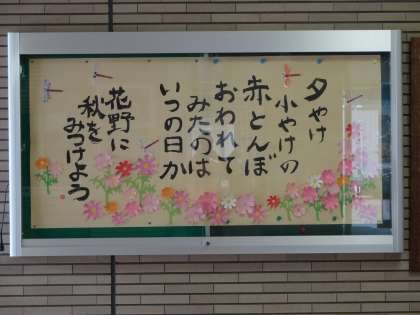 夕やけ
小やけの
赤とんぼ
おわれて
みたのは
いつの日か
花野に
秋を
みつけよう